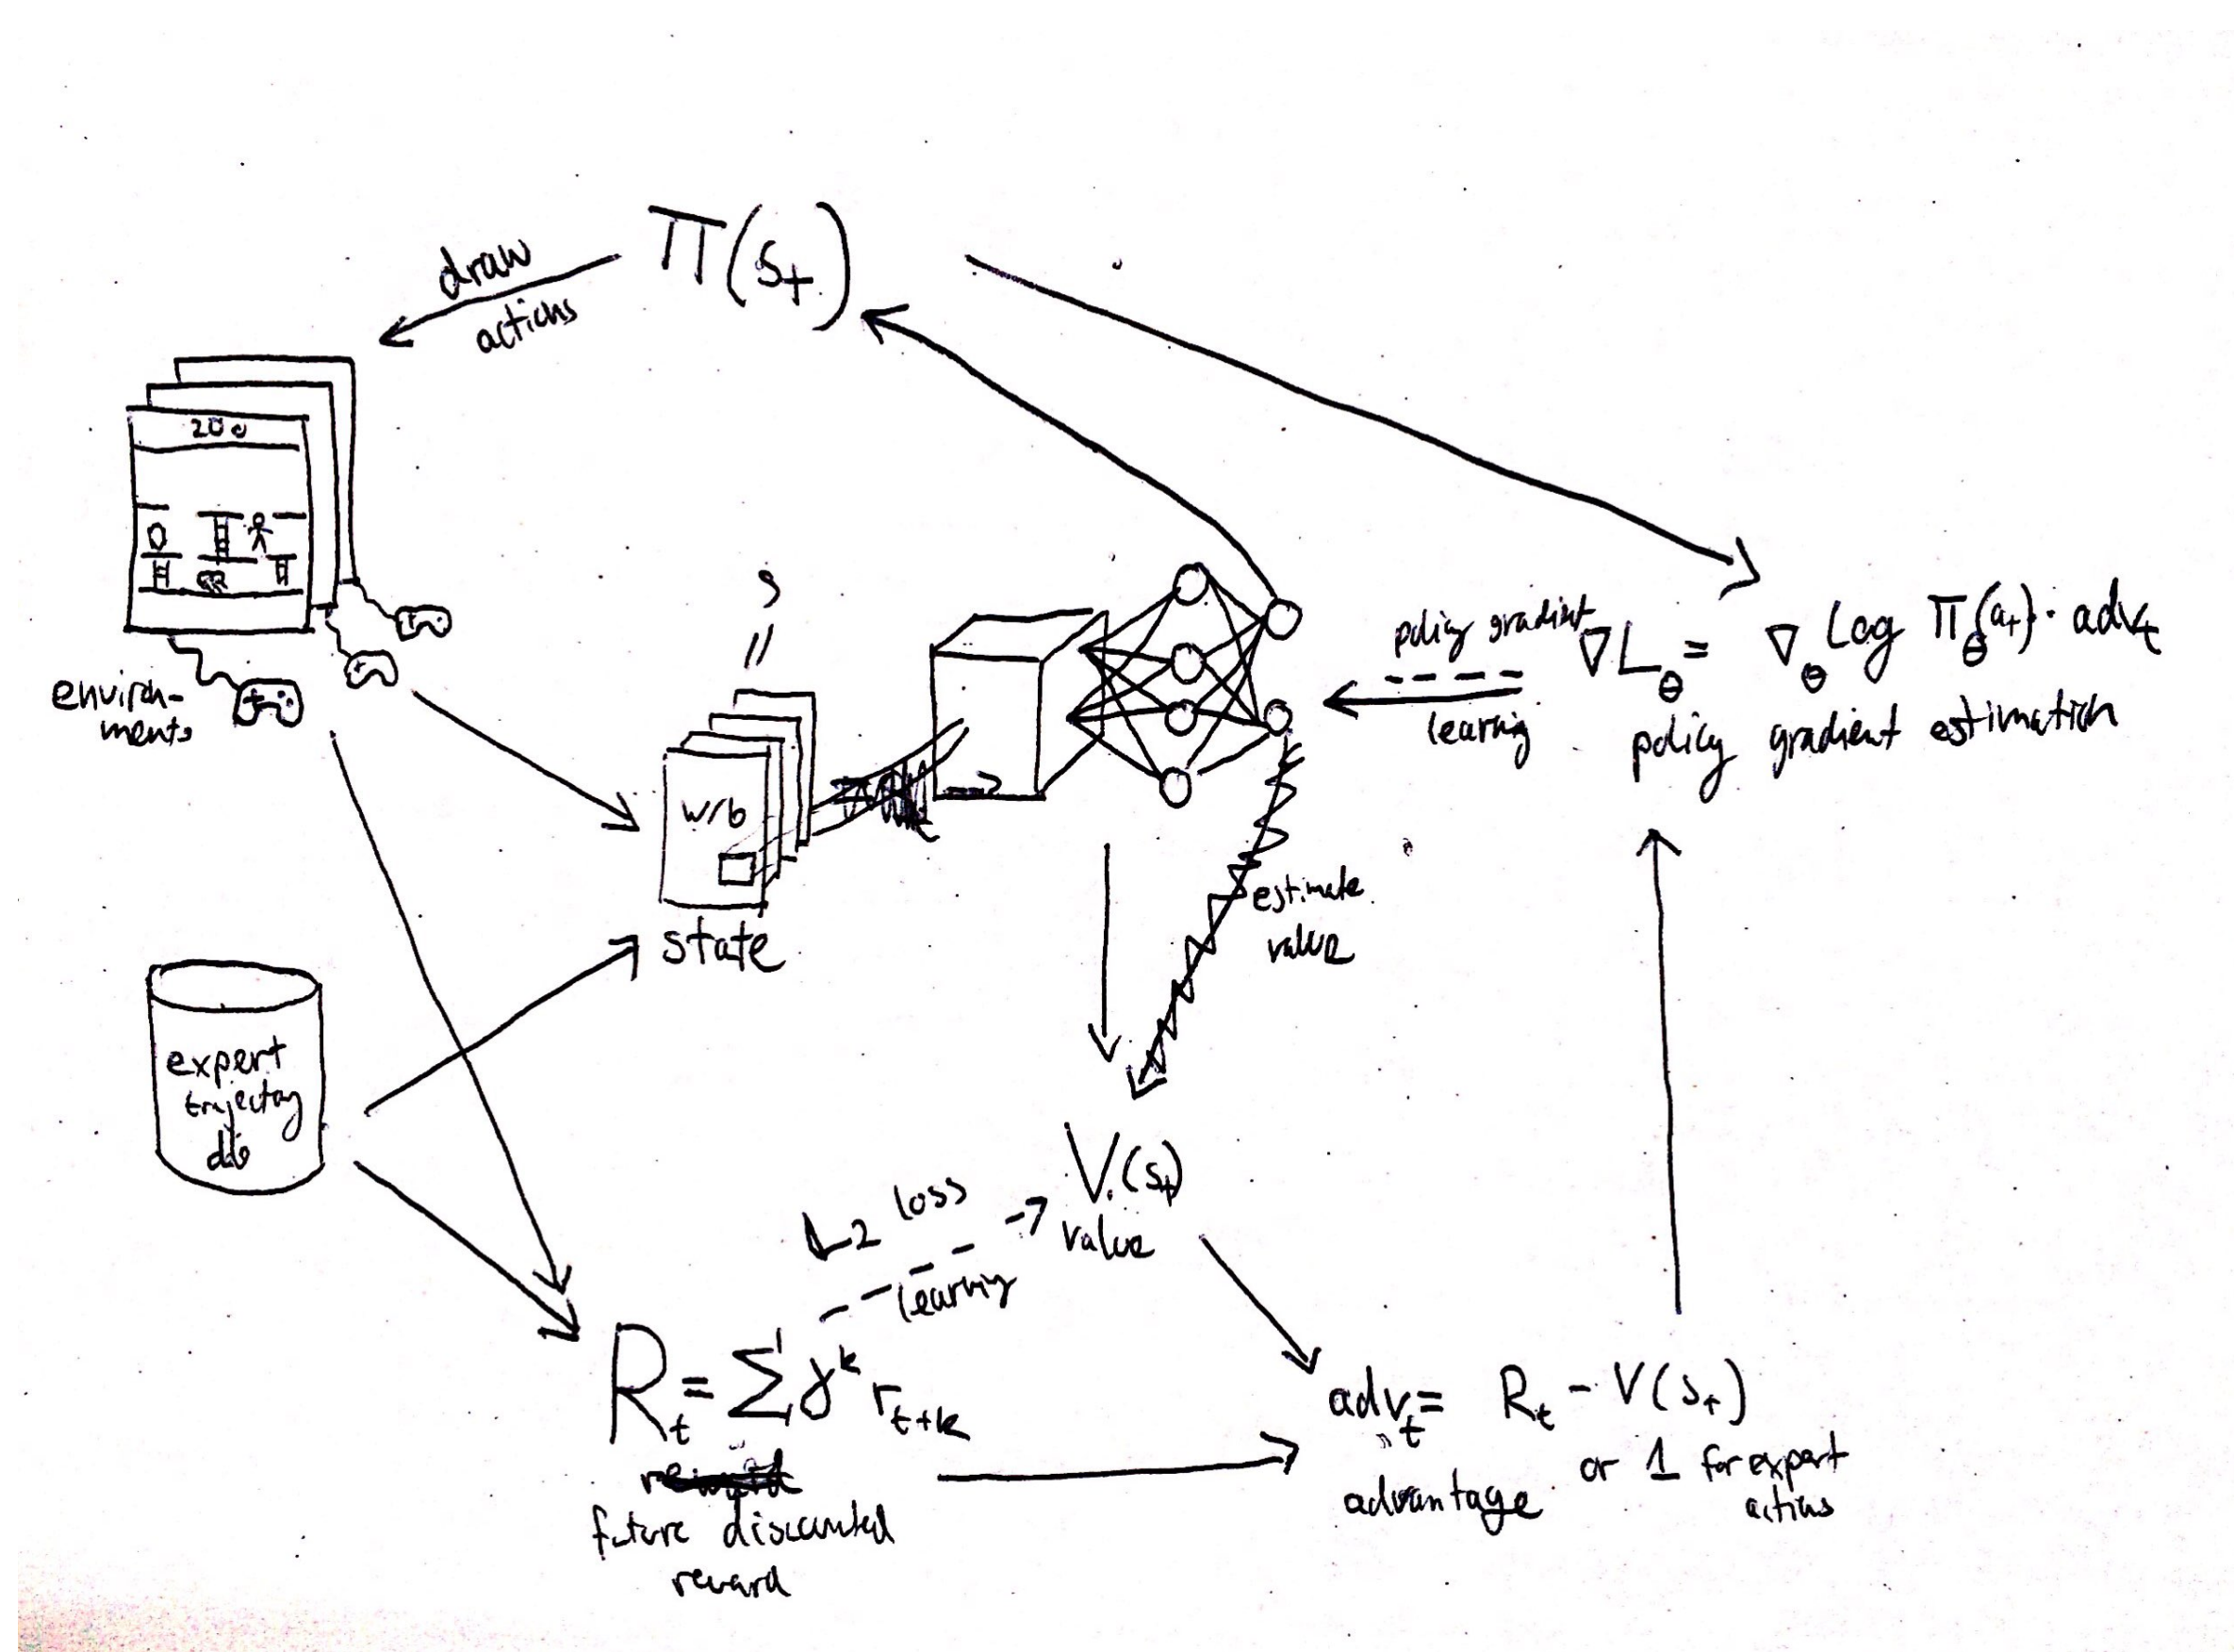 π(s_t)
draw
actions
200
environ-
ments
s
"
w/b
state
policy gradient
learning
∇L_θ = ∇_θ log π_θ(a_t) · adv_t
policy gradient estimation
estimate
value
expert
trajectory
db
V(s_t)
value
L2 loss
learning
R_t = Σ γ^k r_{t+k}
future discounted
reward
adv_t = R_t - V(s_t)
or 1 for expert
actions
advantage